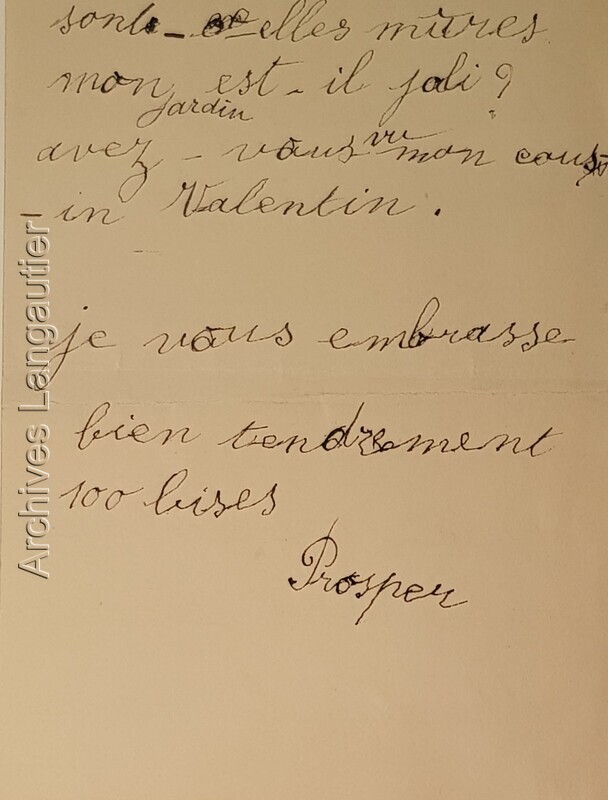 sont-elles mûres
mon jardin est-il joli ?
avez-vous vu mon cous
in Valentin.
je vous embrasse
bien tendrement
100 bises
Prosper
Archives Langautier